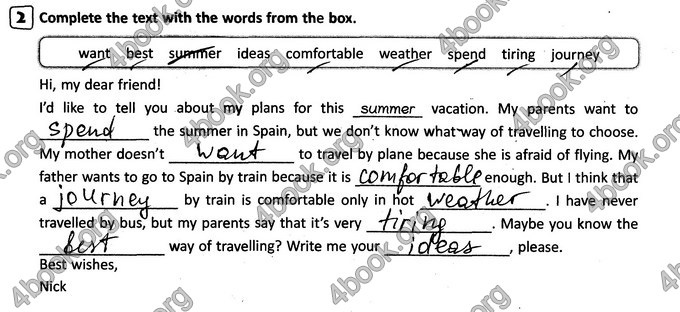 2 Complete the text with the words from the box.
want best summer ideas comfortable weather spend tiring journey
Hi, my dear friend!
I'd like to tell you about my plans for this summer vacation. My parents want to
spend the summer in Spain, but we don't know what way of travelling to choose.
My mother doesn't want to travel by plane because she is afraid of flying. My
father wants to go to Spain by train because it is comfortable enough. But I think that
a journey by train is comfortable only in hot weather. I have never
travelled by bus, but my parents say that it's very tiring. Maybe you know the
best way of travelling? Write me your ideas, please.
Best wishes,
Nick
4book.org
4book.org
4book.org
4book.org
4book.org
4book.org
4book.org
4book.org